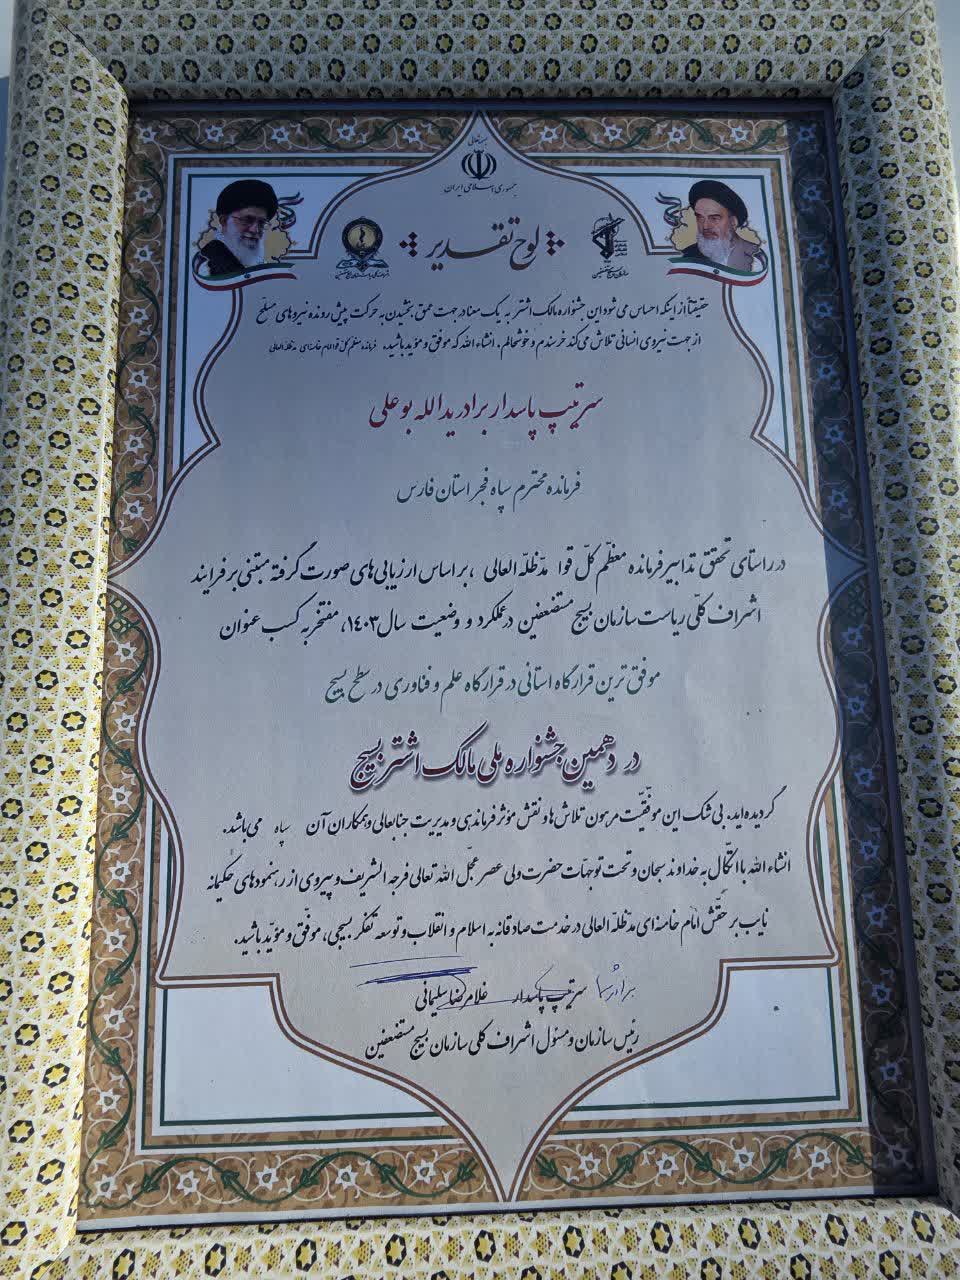 بسمه تعالی
جمهوری اسلامی ایران
لوح تقدیر
حقیقتاً از اینکه احساس می شود این جشنواره مالک اشتر به یک معنا در جهت عمق بخشیدن به حرکت پیش رونده نیروهای مسلح
از جهت نیروی انسانی تلاش می کند خرسندم و خوشحالم. انشاء الله که موفق و مؤید باشید. فرمانده معظم کل قوا امام خامنه ای مدظله العالی
سرتیپ پاسدار برادر یدالله بوعلی
فرمانده محترم سپاه فجر استان فارس
در راستای تحقق تدابیر فرمانده معظّم کلّ قوا مدّظلّه العالی ، بر اساس ارزیابی های صورت گرفته مبتنی بر فرایند
اشراف کلّی ریاست سازمان بسیج مستضعفین در عملکرد و وضعیت سال ۱٤۰۳، مفتخر به کسب عنوان
موفق ترین قرارگاه استانی در قرارگاه علم و فناوری در سطح بسیج
در دهمین جشنواره ملی مالک اشتر بسیج
گردیده اید. بی شک این موفقیّت مرهون تلاش ها و نقش مؤثر فرماندهی و مدیریت جنابعالی و همکاران آن سپاه می باشد.
انشاء الله با اتّکال به خداوند سبحان و تحت توجهات حضرت ولی عصر عجّل الله تعالی فرجه الشریف و پیروی از رهنمودهای حکیمانه
نایب بر حقّش امام خامنه ای مدظلّه العالی در خدمت صادقانه به اسلام و انقلاب و توسعه تفکر بسیجی، موفّق و مؤیّد باشید.
برادر شما
سرتیپ پاسدار غلامرضا سلیمانی
رئیس سازمان و مسئول اشراف کلی سازمان بسیج مستضعفین